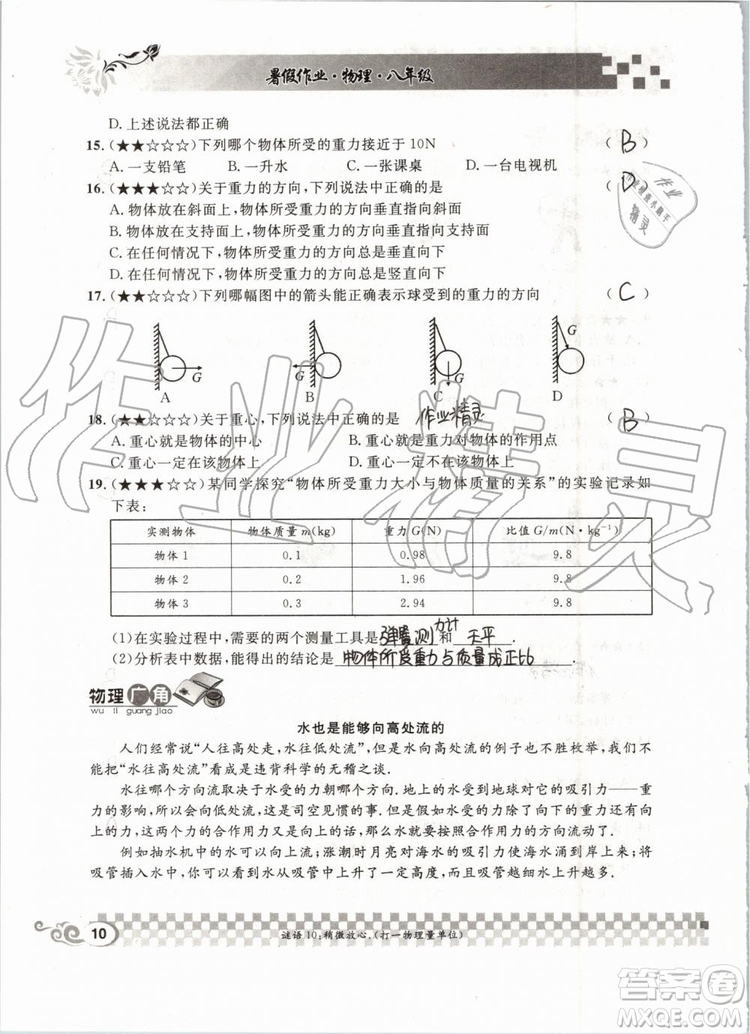 暑假作业·物理·八年级
D. 上述说法都正确
15. (★★☆☆☆)下列哪个物体所受的重力接近于 10N ( B )
A. 一支铅笔 B. 一升水 C. 一张课桌 D. 一台电视机
16. (★★★☆☆)关于重力的方向,下列说法中正确的是 ( D )
A. 物体放在斜面上,物体所受重力的方向垂直指向斜面
B. 物体放在支持面上,物体所受重力的方向垂直指向支持面
C. 在任何情况下,物体所受重力的方向总是垂直向下
D. 在任何情况下,物体所受重力的方向总是竖直向下
17. (★★☆☆☆)下列哪幅图中的箭头能正确表示球受到的重力的方向 ( C )
G G G G
A B C D
18. (★★☆☆☆)关于重心,下列说法中正确的是 作业精灵 ( B )
A. 重心就是物体的中心 B. 重心就是重力对物体的作用点
C. 重心一定在该物体上 D. 重心一定不在该物体上
19. (★★★☆☆)某同学探究“物体所受重力大小与物体质量的关系”的实验记录如
下表:
实测物体 物体质量 m(kg) 重力 G(N) 比值 G/m(N·kg⁻¹)
物体 1 0.1 0.98 9.8
物体 2 0.2 1.96 9.8
物体 3 0.3 2.94 9.8
(1)在实验过程中,需要的两个测量工具是 弹簧测力计 和 天平 .
(2)分析表中数据,能得出的结论是 物体所受重力与质量成正比 .
物理广角
wu li guang jiao
水也是能够向高处流的
人们经常说“人往高处走,水往低处流”,但是水向高处流的例子也不胜枚举,我们不
能把“水往高处流”看成是违背科学的无稽之谈.
水往哪个方向流取决于水受的力朝哪个方向.地上的水受到地球对它的吸引力——重
力的影响,所以会向低处流,这是司空见惯的事.但假如水受的力除了向下的重力外还有向上
的力,这两个力的合作用力又是向上的话,那么水就要沿合作用力的方向流动了.
例如抽水机中的水可以向上流;涨潮时月亮对海水的吸引力使海水向岸上涌来;将
吸管插入水中,会发现水从吸管中上升了一定高度,而且吸管越细水上升得越多.
10
谜语 10:稍微放心.(打一物理量单位)
作业精灵
作业
精灵
答案圈
MXQE.COM